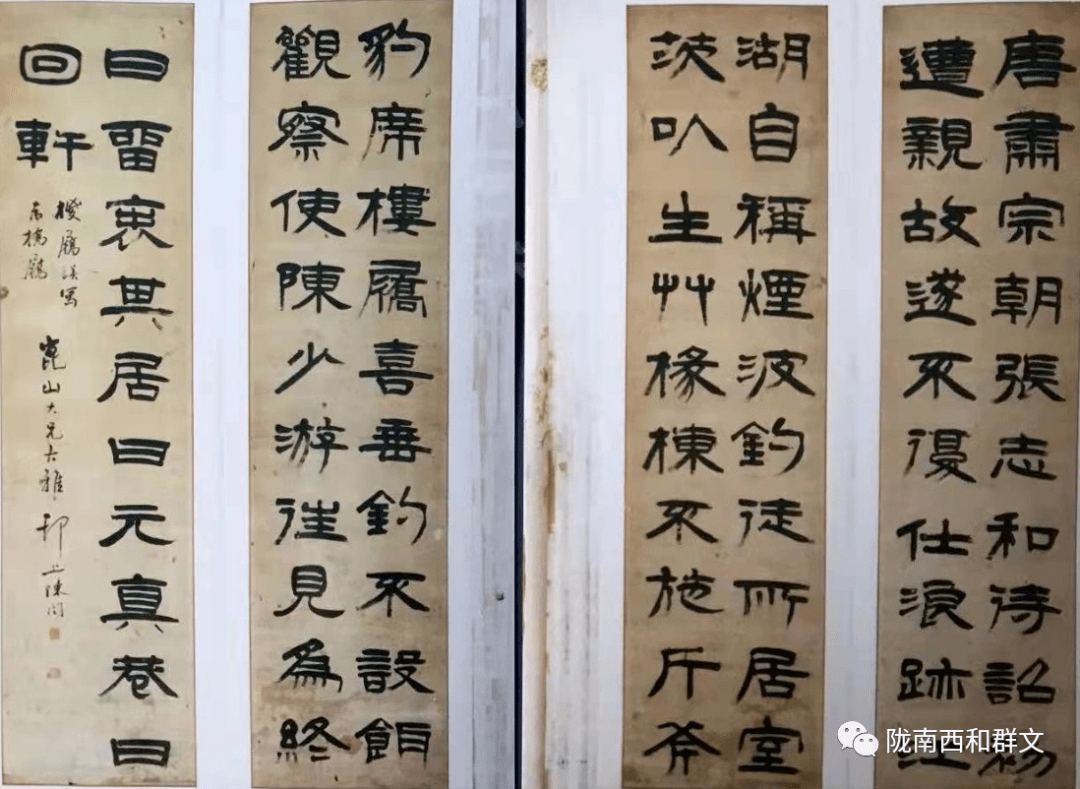 唐肅宗朝張志和待詔
遭親故遂不復仕浪跡江
湖自稱煙波釣徒所居室
茨以生艸椽棟不施斤斧
豹席樓屩喜垂釣不設餌
觀察使陳少游往見為終
日留表其居曰元真巷曰
回軒
椶屩誤寫
為樓屩
崑山大兄大雅 邗上陳
陇南西和群文